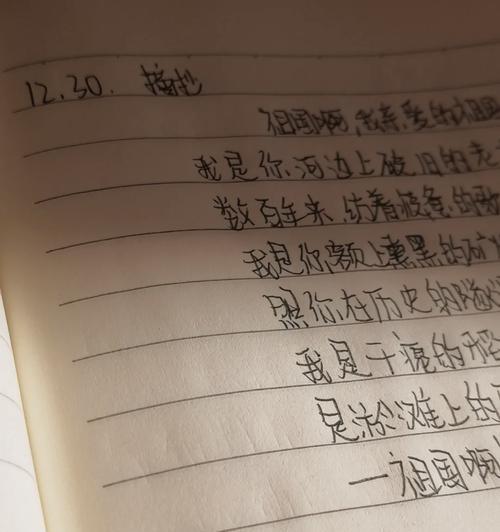 12.30. 摘抄
祖国啊,我亲爱的祖国
我是你河边上破旧的老
数百年来纺着疲惫的歌
我是你额上熏黑的矿
照你在历史的隧
我是干瘪的稻
是淤滩上的
—祖国啊